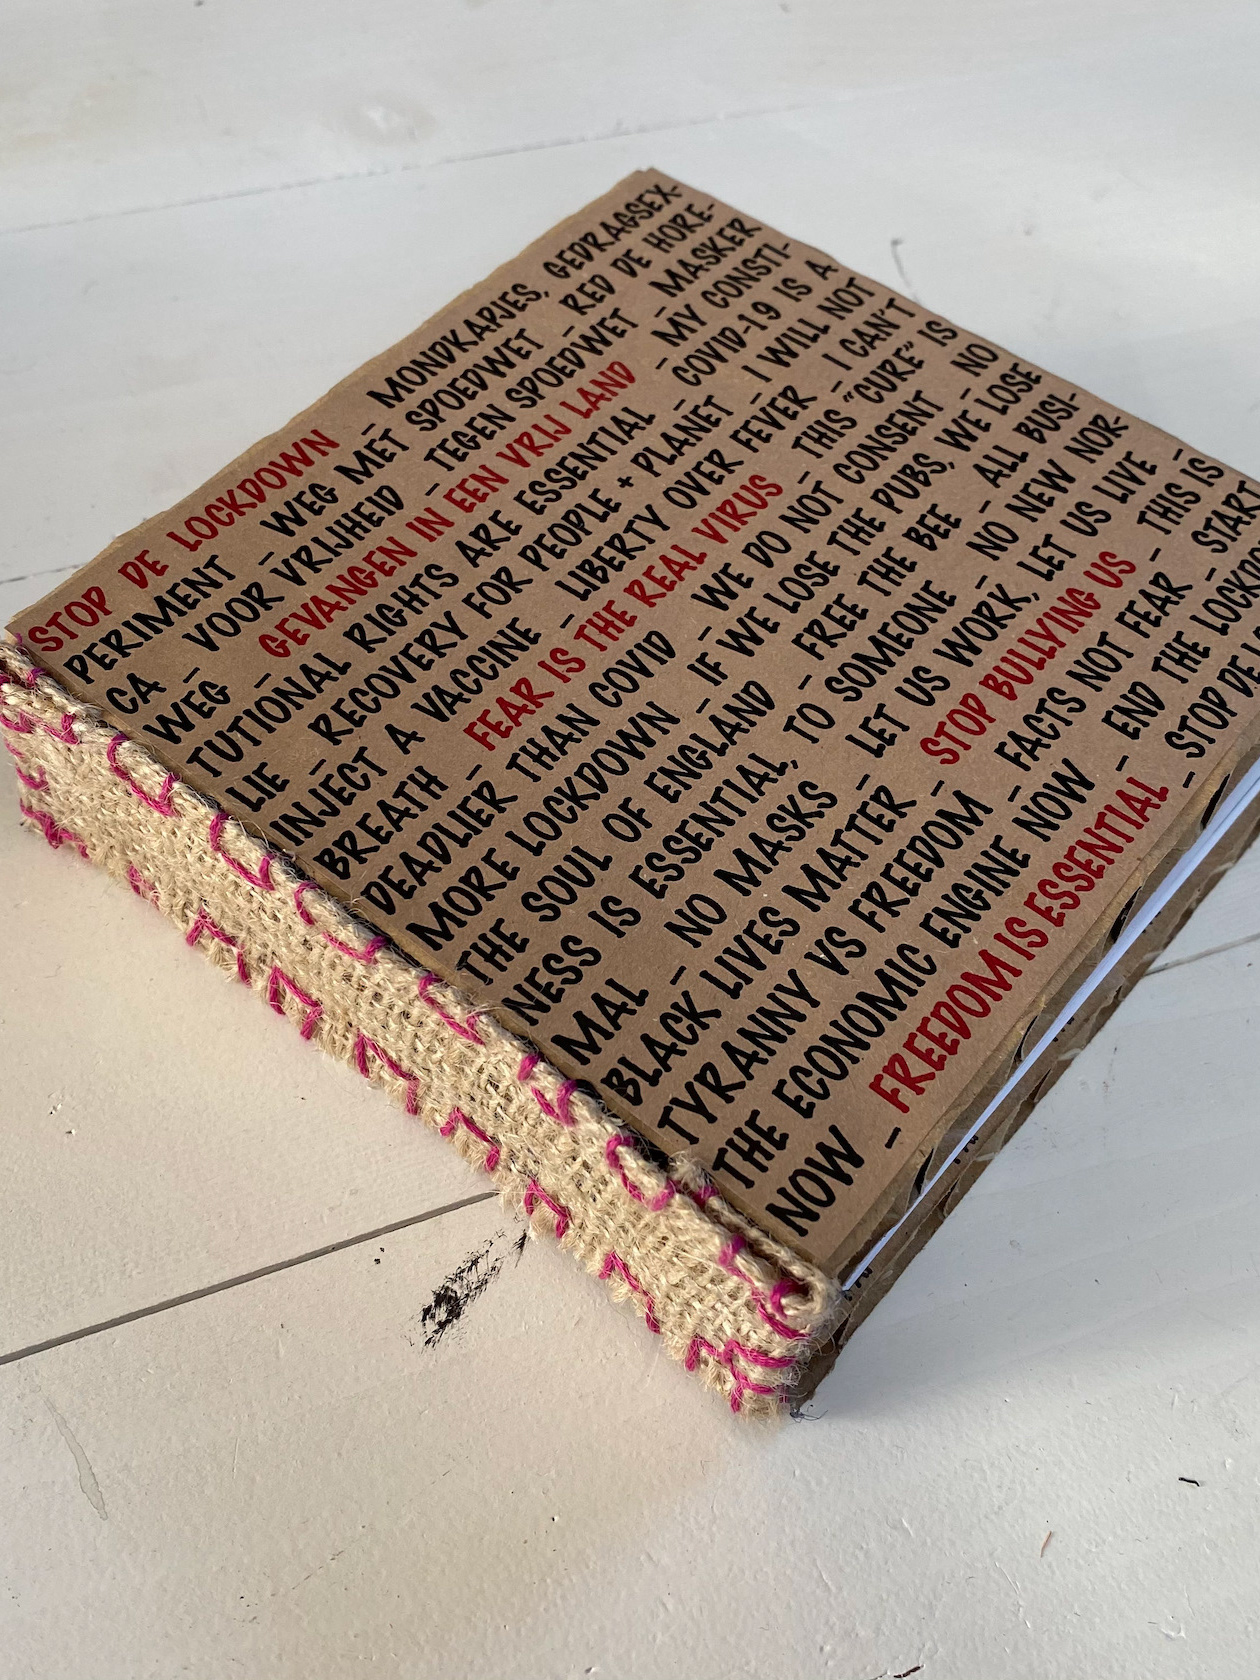 STOP DE LOCKDOWN - MONDKAPJES, GEDRAGSEX-
PERIMENT - WEG MET SPOEDWET - RED DE HORE-
CA - VOOR VRIJHEID - TEGEN SPOEDWET - MASKER
WEG - GEVANGEN IN EEN VRIJ LAND - MY CONSTI-
TUTIONAL RIGHTS ARE ESSENTIAL - COVID-19 IS A
LIE - RECOVERY FOR PEOPLE + PLANET - I WILL NOT
INJECT A VACCINE - LIBERTY OVER FEVER - I CAN'T
BREATH - FEAR IS THE REAL VIRUS - THIS "CURE" IS
DEADLIER THAN COVID - WE DO NOT CONSENT - NO
MORE LOCKDOWN - IF WE LOSE THE PUBS, WE LOSE
THE SOUL OF ENGLAND - FREE THE BEE - ALL BUSI-
NESS IS ESSENTIAL, TO SOMEONE - NO NEW NOR-
MAL - NO MASKS - LET US WORK, LET US LIVE -
BLACK LIVES MATTER - STOP BULLYING US - THIS IS
TYRANNY VS FREEDOM - FACTS NOT FEAR - START
THE ECONOMIC ENGINE NOW - END THE LOCKDOWN
NOW - FREEDOM IS ESSENTIAL - STOP DE